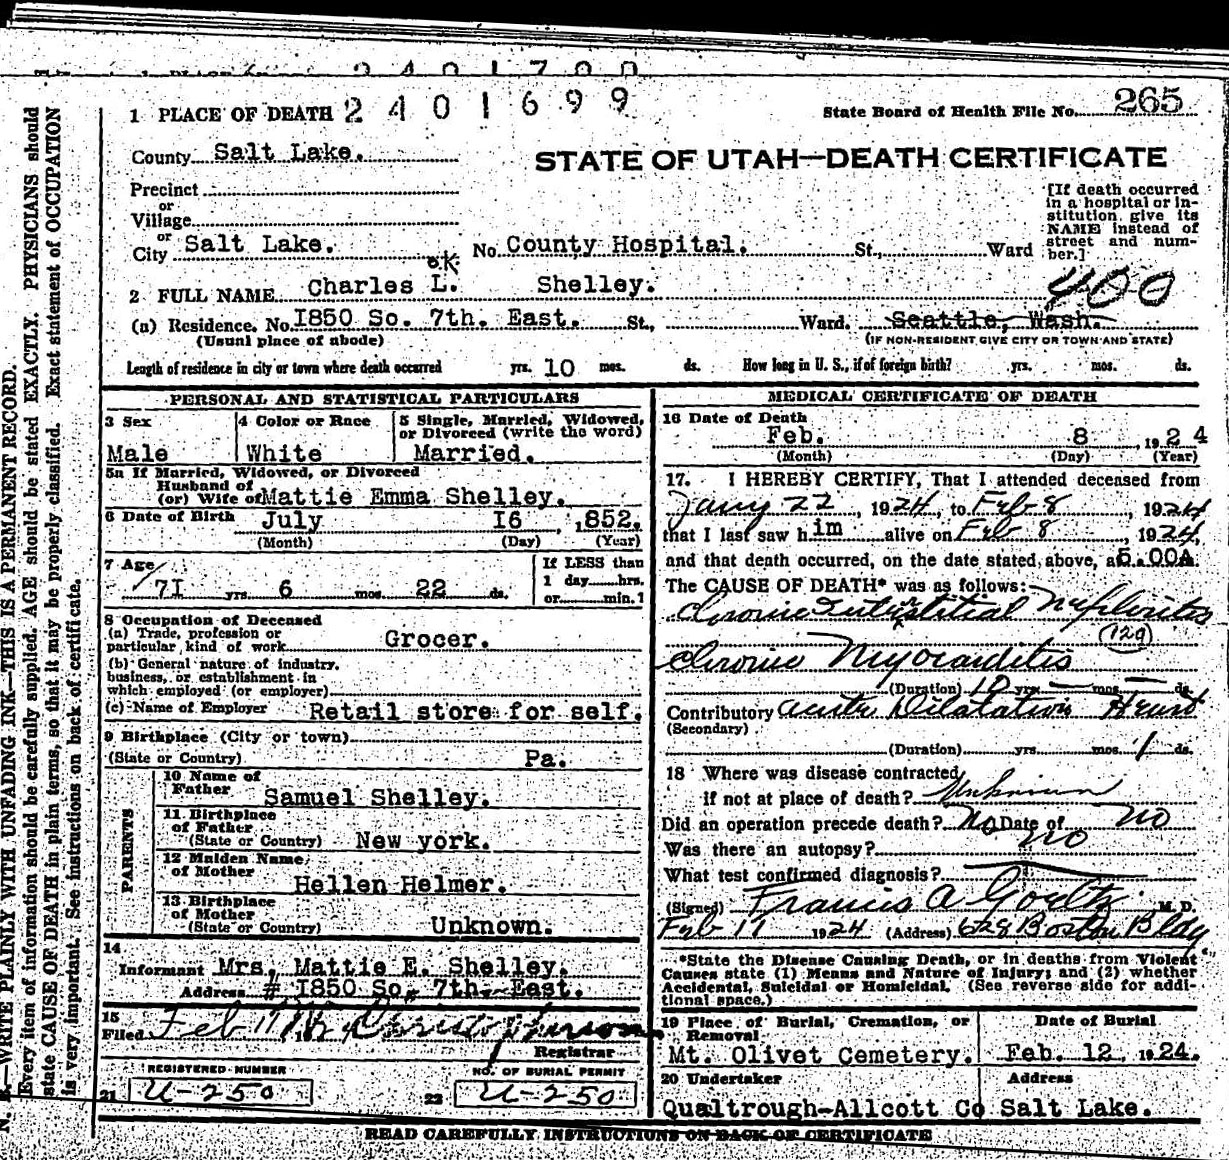 2401700
1 PLACE OF DEATH 2401699
State Board of Health File No. 265
County Salt Lake.
STATE OF UTAH—DEATH CERTIFICATE
Precinct
or
Village
or
City Salt Lake. No. County Hospital. St., Ward
[If death occurred
in a hospital or in-
stitution, give its
NAME instead of
street and num-
ber.]
ok
2 FULL NAME Charles L. Shelley.
400
(a) Residence. No. I850 So. 7th. East. St., Ward. Seattle, Wash.
(Usual place of abode) (IF NON-RESIDENT GIVE CITY OR TOWN AND STATE)
Length of residence in city or town where death occurred yrs. 10 mos. ds. How long in U. S., if of foreign birth? yrs. mos. ds.
PERSONAL AND STATISTICAL PARTICULARS
3 Sex
Male
4 Color or Race
White
5 Single, Married, Widowed,
or Divorced (write the word)
Married.
5a If Married, Widowed, or Divorced
Husband of
(or) Wife of Mattie Emma Shelley.
6 Date of Birth July I6 ,1852.
(Month) (Day) (Year)
7 Age
7I yrs. 6 mos. 22 ds.
If LESS than
1 day hrs.
or min.1
8 Occupation of Deceased
(a) Trade, profession or
particular kind of work Grocer.
(b) General nature of industry,
business, or establishment in
which employed (or employer)
(c) Name of Employer Retail store for self.
9 Birthplace (City or town)
(State or Country) Pa.
PARENTS
10 Name of
Father Samuel Shelley.
11 Birthplace
of Father
(State or Country) New york.
12 Maiden Name
of Mother Hellen Helmer.
13 Birthplace
of Mother
(State or Country) Unknown.
14
Informant Mrs. Mattie E. Shelley.
Address # I850 So. 7th. East.
15
Filed Feb 11
Registrar
REGISTERED NUMBER
21 U-250
NO. OF BURIAL PERMIT
22 U-250
MEDICAL CERTIFICATE OF DEATH
16 Date of Death
Feb. 8 , 1924
(Month) (Day) (Year)
17. I HEREBY CERTIFY, That I attended deceased from
Jany 22, 1924, to Feb 8, 1924
that I last saw him alive on Feb 8, 1924,
and that death occurred, on the date stated above, at 5.00A.
The CAUSE OF DEATH* was as follows:
Chronic Interstitial Nephritis
(129)
Chronic Myocarditis
(Duration) 10 yrs. — mos. — ds.
Contributory Acute Dilatation Heart
(Secondary)
(Duration) yrs. mos. 1 ds.
18 Where was disease contracted
if not at place of death? Unknown
Did an operation precede death? No Date of NO
Was there an autopsy? no
What test confirmed diagnosis? —
(Signed) Francis A M. D.
Feb 1924 (Address) 628 Boston Bldg
*State the Disease Causing Death, or in deaths from Violent
Causes state (1) Means and Nature of Injury; and (2) whether
Accidental, Suicidal or Homicidal. (See reverse side for addi-
tional space.)
19 Place of Burial, Cremation, or
Removal
Mt. Olivet Cemetery.
Date of Burial
Feb. 12, 1924.
20 Undertaker
Qualtrough-Allcott Co
Address
Salt Lake.
READ CAREFULLY INSTRUCTIONS ON BACK OF CERTIFICATE
N. B.—WRITE PLAINLY WITH UNFADING INK—THIS IS A PERMANENT RECORD.
Every item of information should be carefully supplied. AGE should be stated EXACTLY. PHYSICIANS should
state CAUSE OF DEATH in plain terms, so that it may be properly classified. Exact statement of OCCUPATION
is very important. See instructions on back of certificate.